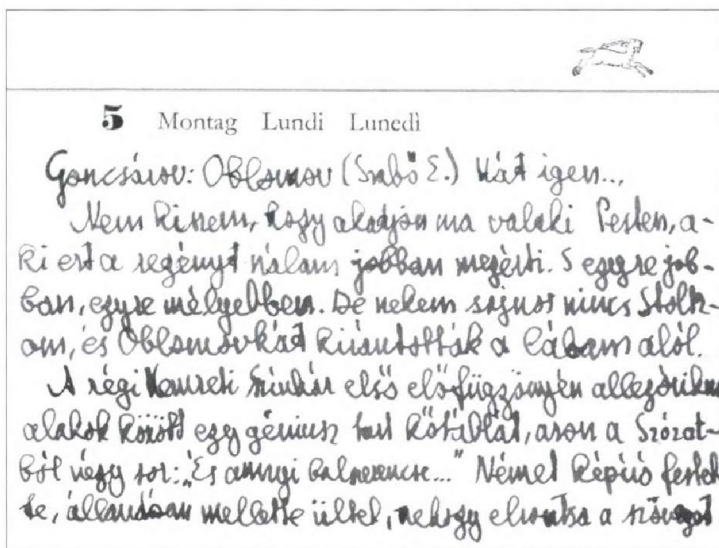 5 Montag Lundi Lunedì
Goncsárov: Oblomov (Szabó E.) Hát igen...
Nem hiszem, hogy akadjon ma valaki Pesten, a-
ki ezt a regényt nálam jobban megérti. S egyre job-
ban, egyre mélyebben. De nekem sajnos nincs Stolz-
om, és Oblomovkát kirántották a lábam alól.
A régi Nemzeti Színház első előfüggönyén allegórikus
alakok között egy géniusz tart kőtáblát, azon a Szózat-
ból négy sor: „És annyi balszerencse...” Német képíró festet-
te, állandóan mellette ültek, nehogy elrontsa a szöveget